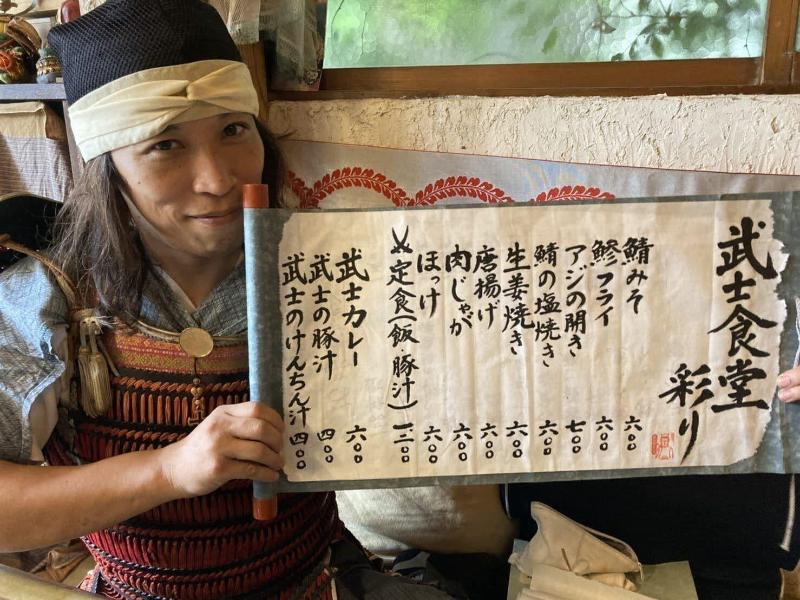 武士食堂
彩り
鯖みそ 六〇〇
鯵フライ 六〇〇
アジの開き 七〇〇
鯖の塩焼き 六〇〇
生姜焼き 六〇〇
唐揚げ 六〇〇
肉じゃが 六〇〇
ほっけ 六〇〇
定食(飯・豚汁)
武士カレー 六〇〇
武士の豚汁 四〇〇
武士のけんちん汁 四〇〇